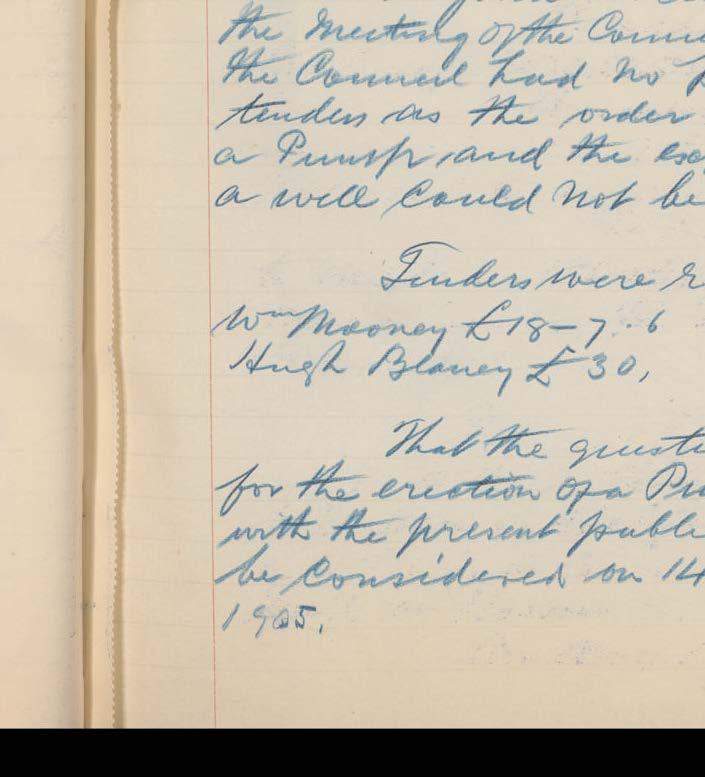 the Meeting of the Counc
the Council had no p
tenders as the order
a Pump and the exc
a well could not be
Tenders were r
Wm Mooney £18-7.6
Hugh Blaney £30,
That the questi
for the erection of a Pu
with the present publi
be considered on 14
1905.